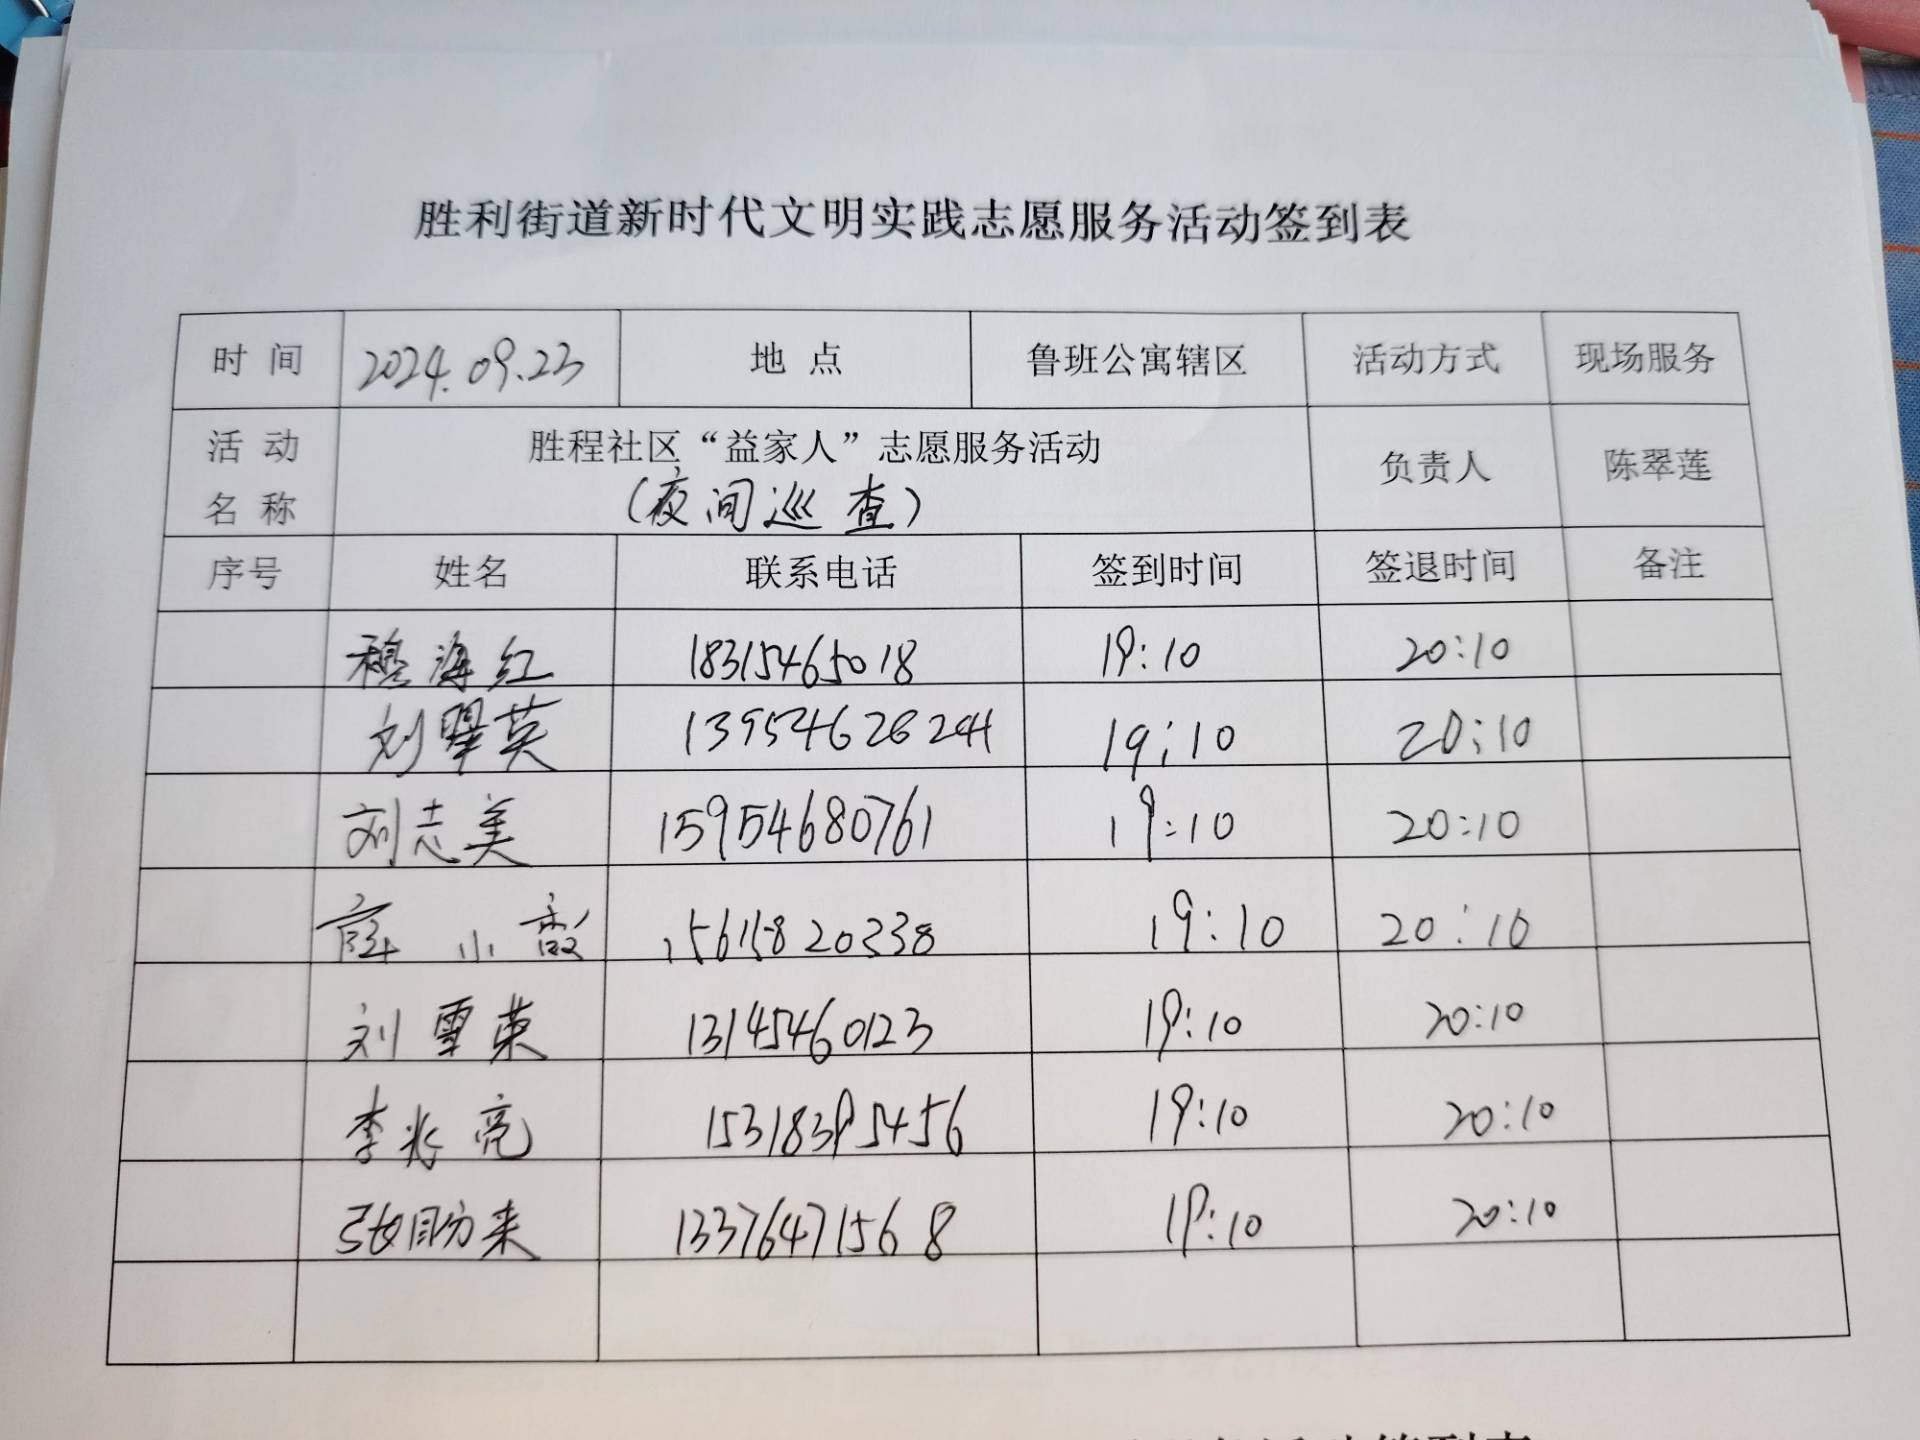 胜利街道新时代文明实践志愿服务活动签到表
时 间 2024.09.23 地 点 鲁班公寓辖区 活动方式 现场服务
活 动 名 称 胜程社区“益家人”志愿服务活动 负责人 陈翠莲
(夜间巡查)
序号 姓名 联系电话 签到时间 签退时间 备注
穆海红 18315465018 19:10 20:10
刘翠英 13954628244 19:10 20:10
刘志美 15954680761 19:10 20:10
薛小 15615820338 19:10 20:10
刘雪荣 13145460123 19:10 20:10
李兆亮 15318395456 19:10 20:10
张助来 13376471568 19:10 20:10